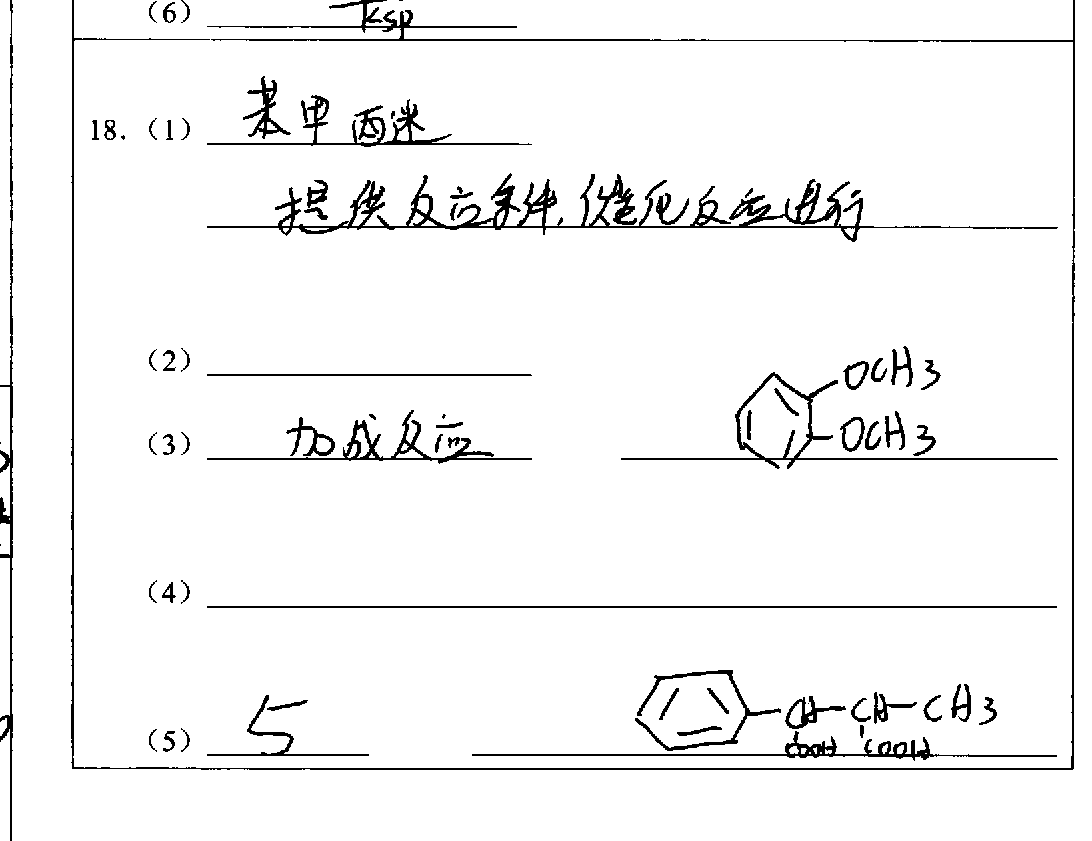 (6) Ksp
18.(1) 苯甲丙迷
提供反应条件,催化反应进行
(2)
OCH3
(3) 加成反应 OCH3
(4)
(5) 5 CH-CH-CH3
COOH COOH